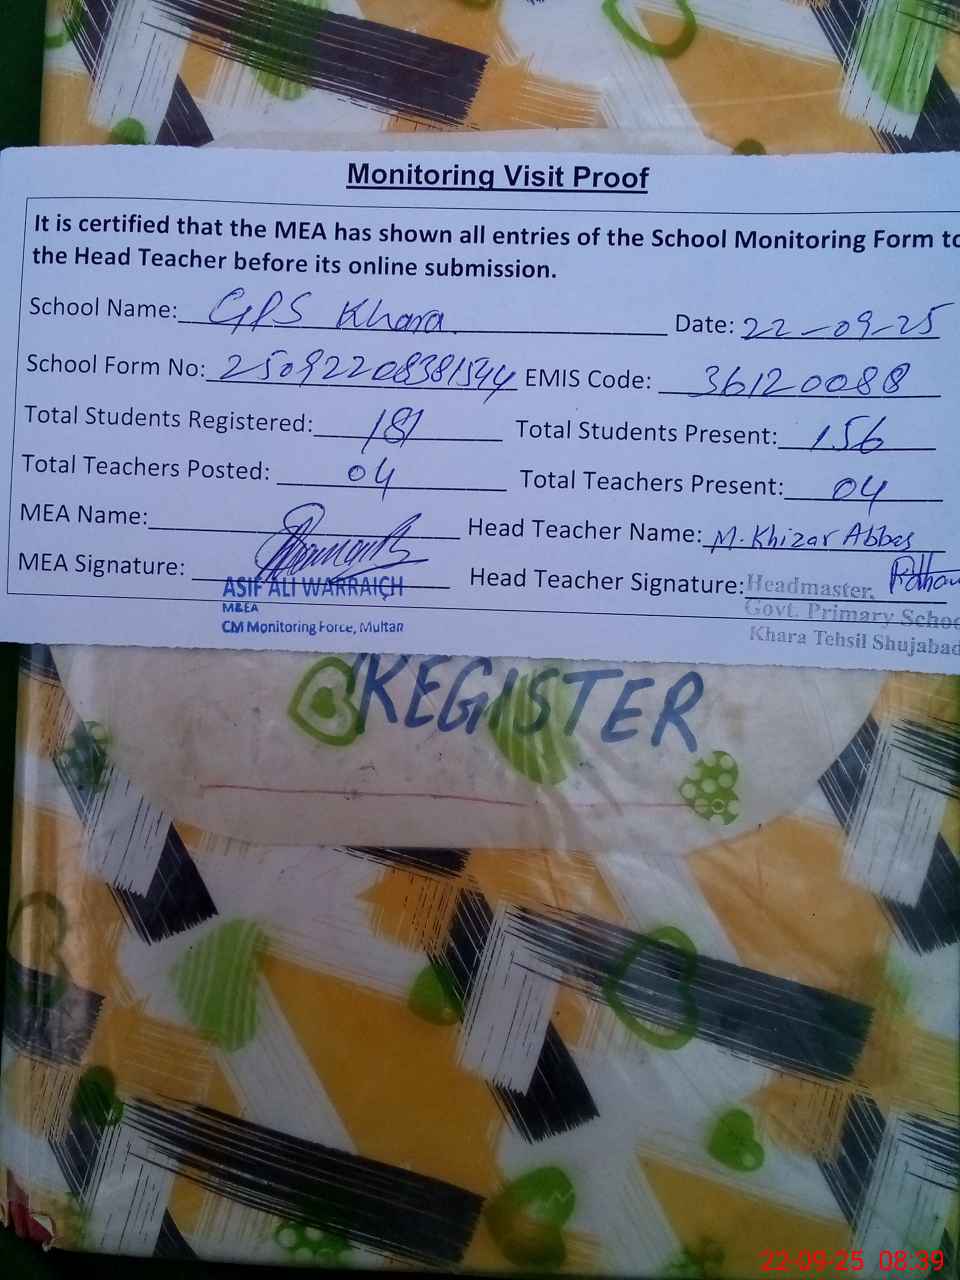 Monitoring Visit Proof
It is certified that the MEA has shown all entries of the School Monitoring Form to
the Head Teacher before its online submission.
School Name: GPS Khara Date: 22-09-25
School Form No: 25092208381544 EMIS Code: 36120088
Total Students Registered: 181 Total Students Present: 156
Total Teachers Posted: 04 Total Teachers Present: 04
MEA Name: Head Teacher Name: M. Khizar Abbas
MEA Signature: Head Teacher Signature: Headmaster,
ASIF ALI WARRAICH
M&EA
CM Monitoring Force, Multan
Govt. Primary Schoo
Khara Tehsil Shujabad
REGISTER
22-09-25 08:39